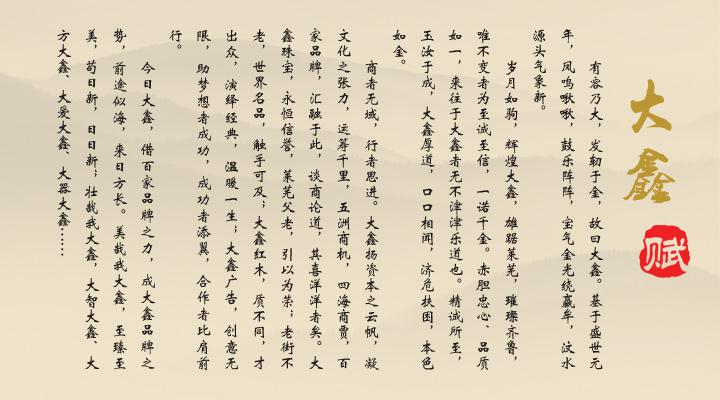 大鑫
赋
有容乃大，发轫于金，故曰大鑫。基于盛世元
年，凤鸣啾啾，鼓乐阵阵，宝气金光绕嬴牟，汶水
源头气象新。
岁月如驹，辉煌大鑫，雄踞莱芜，璀璨齐鲁，
唯不变者为至诚至信，一诺千金。赤胆忠心、品质
如一，来往于大鑫者无不津津乐道也。精诚所至，
玉汝于成，大鑫厚道，口口相闻，济危扶困，本色
如金。
商者无域，行者思进。大鑫扬资本之云帆，凝
文化之张力，运筹千里，五洲商机，四海商贾，百
家品牌，汇融于此，谈商论道，其喜洋洋者矣。大
鑫珠宝，永恒信誉，莱芜父老，引以为荣；老街不
老，世界名品，触手可及；大鑫红木，质不同，才
出众，演绎经典，温暖一生；大鑫广告，创意无
限，助梦想者成功，成功者添翼，合作者比肩前
行。
今日大鑫，借百家品牌之力，成大鑫品牌之
势，前途似海，来日方长。美哉我大鑫，至臻至
美，苟日新，日日新；壮哉我大鑫，大智大鑫、大
方大鑫、大爱大鑫、大器大鑫……